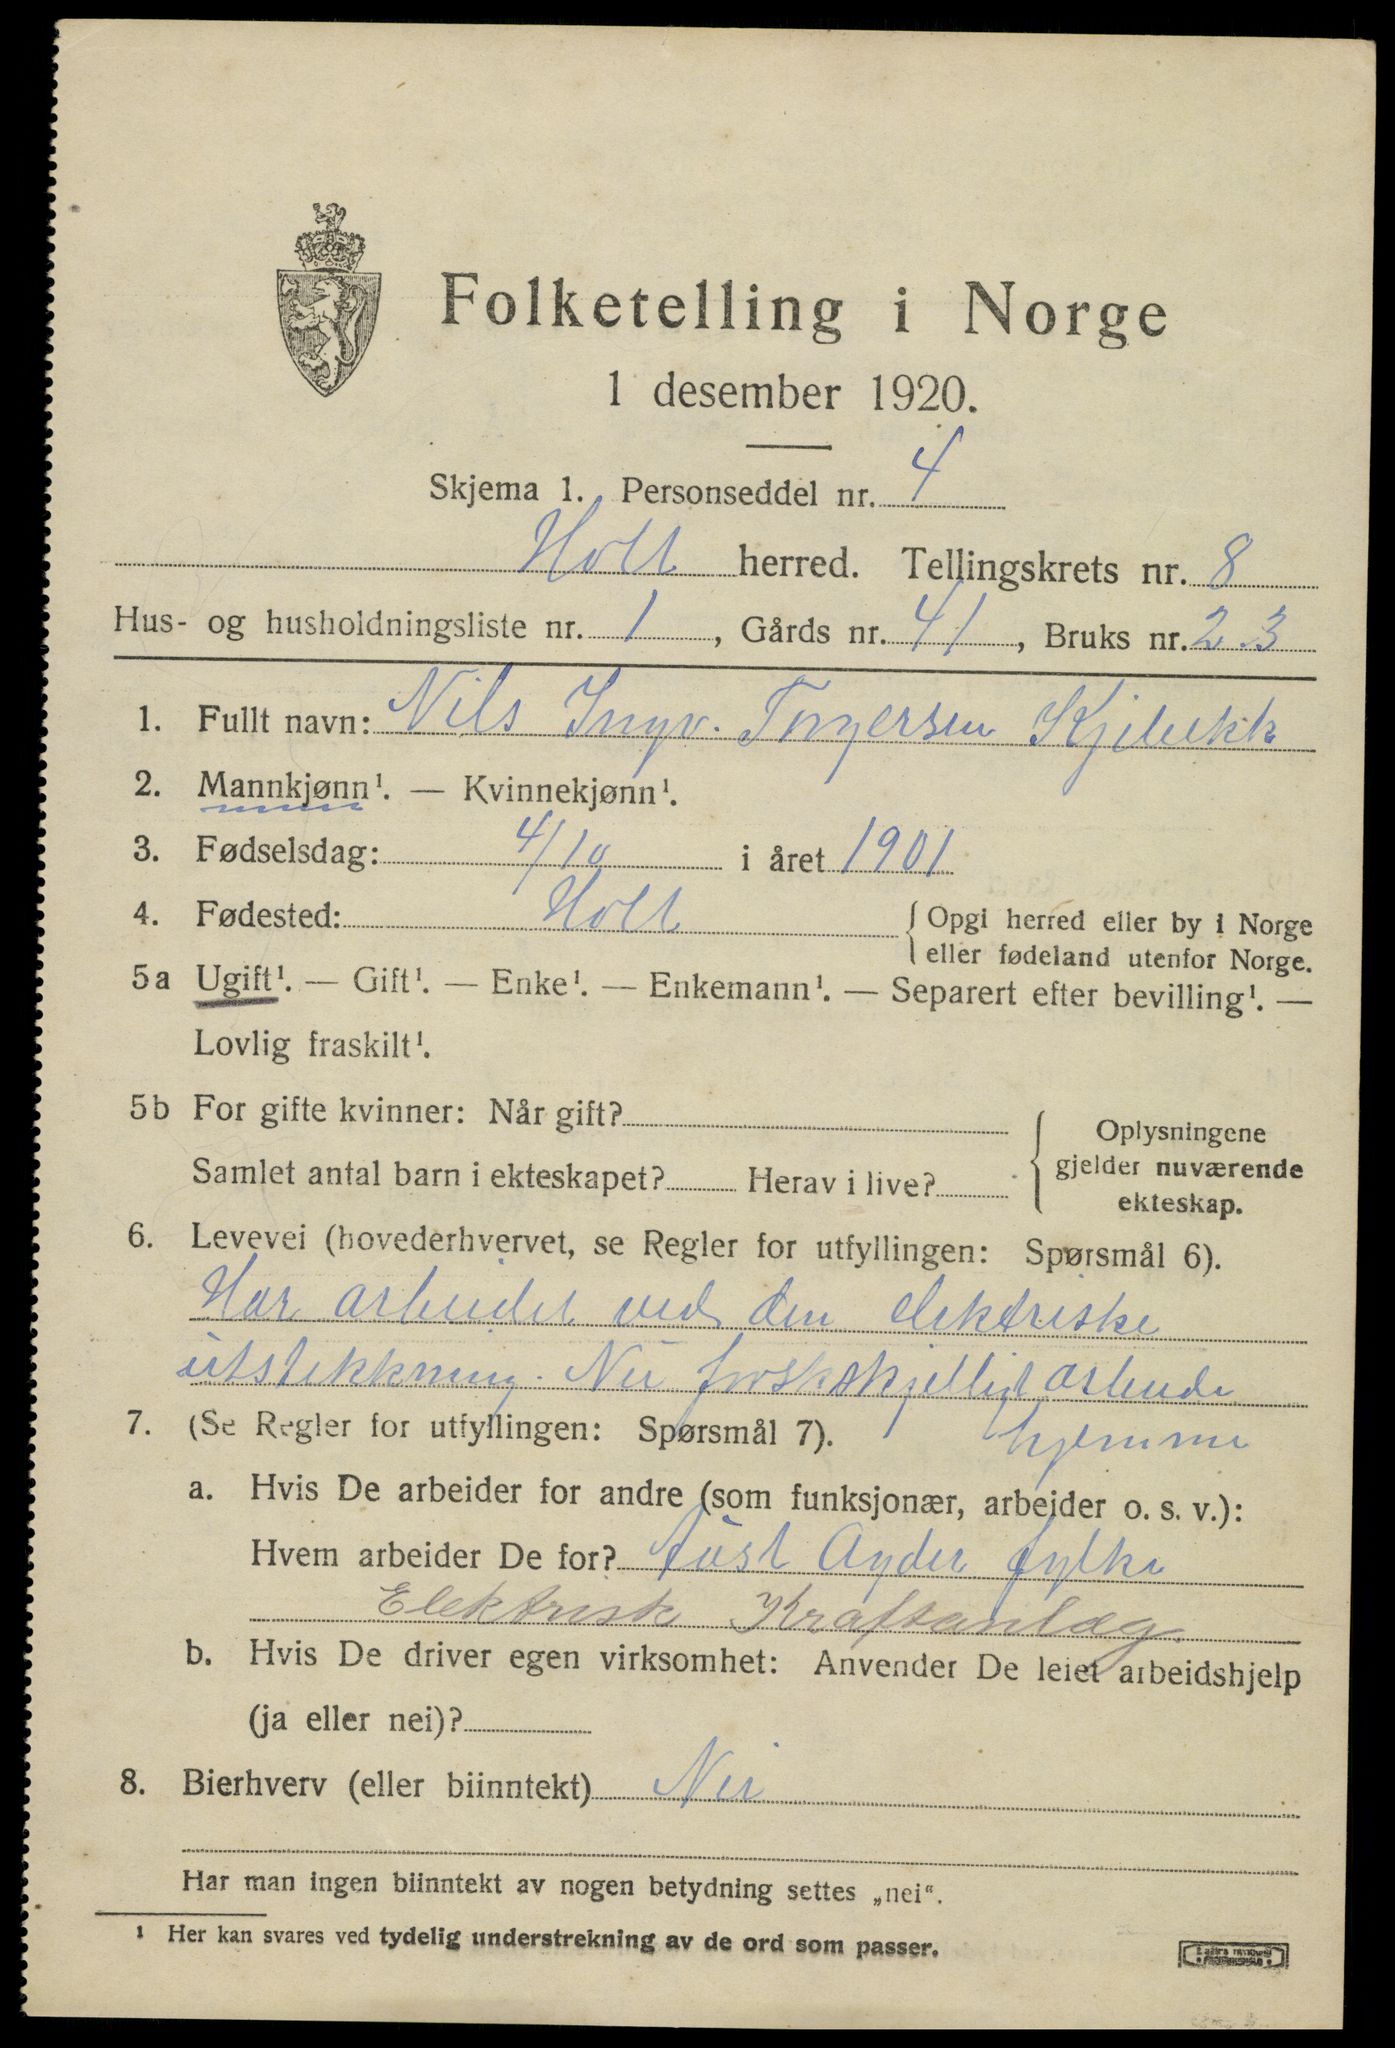 Folketelling i Norge
1 desember 1920.
Skjema 1. Personseddel nr. 4
Holt herred. Tellingskrets nr. 8
Hus- og husholdningsliste nr. 1, Gårds nr. 41, Bruks nr. 23
1. Fullt navn: Nils Ingv. Torgersen Kjebekk
2. Mannkjønn¹. — Kvinnekjønn¹.
3. Fødselsdag: 4/10 i året 1901
4. Fødested: Holt { Opgi herred eller by i Norge
eller fødeland utenfor Norge.
5a Ugift¹. — Gift¹. — Enke¹. — Enkemann¹. — Separert efter bevilling¹. —
Lovlig fraskilt¹.
5b For gifte kvinner: Når gift?
Samlet antal barn i ekteskapet? Herav i live?
{ Oplysningene
gjelder nuværende
ekteskap.
6. Levevei (hovederhvervet, se Regler for utfyllingen: Spørsmål 6).
Har arbeidet ved den elektriske
utstikkning. Nu forskskjelligt arbeide
hjemme
7. (Se Regler for utfyllingen: Spørsmål 7).
a. Hvis De arbeider for andre (som funksjonær, arbeider o. s. v.):
Hvem arbeider De for? Aust Agder fylke
Elektrisk Kraftanlæg.
b. Hvis De driver egen virksomhet: Anvender De leiet arbeidshjelp
(ja eller nei)?
8. Bierhverv (eller biinntekt) Nei
Har man ingen biinntekt av nogen betydning settes „nei“.
¹ Her kan svares ved tydelig understrekning av de ord som passer.